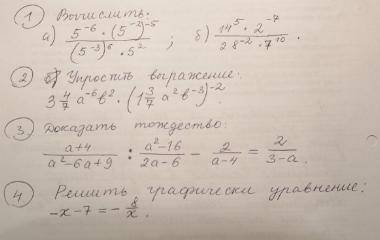 ① Вычислить:
а) (5⁻⁶ · (5⁻²)⁻⁵) / ((5⁻³)⁶ · 5²) ; б) (14⁵ · 2⁻⁷) / (28⁻² · 7¹⁰) .
② Упростить выражение:
3 4/7 a⁻⁶b² · (1 3/7 a²b⁻³)⁻²
③ Доказать тождество:
(a+4)/(a²-6a+9) : (a²-16)/(2a-6) - 2/(a-4) = 2/(3-a) .
④ Решить графически уравнение:
-x-7 = - 8/x .